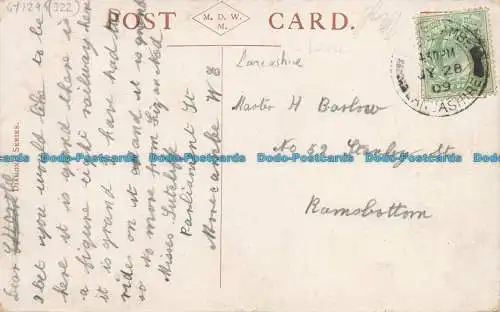 G1129 (322)
POST CARD.
M. D. W. M.
DIAMOND SERIES.
Dear
I bet you would like to be
here it is grand there is
a figure eight railway here
it is grand I have had two
rides on it and it is grand
so no more from Sig or Ned
Misses Sutcliffe
Parliament St
Morecambe W E
Lancashire
Master H Barlow
No 52 Stanley St
Ramsbottom
JY 28
09
Dodo-Postcards.Ltd Dodo-Postcards.Ltd Dodo-Postcards.Ltd